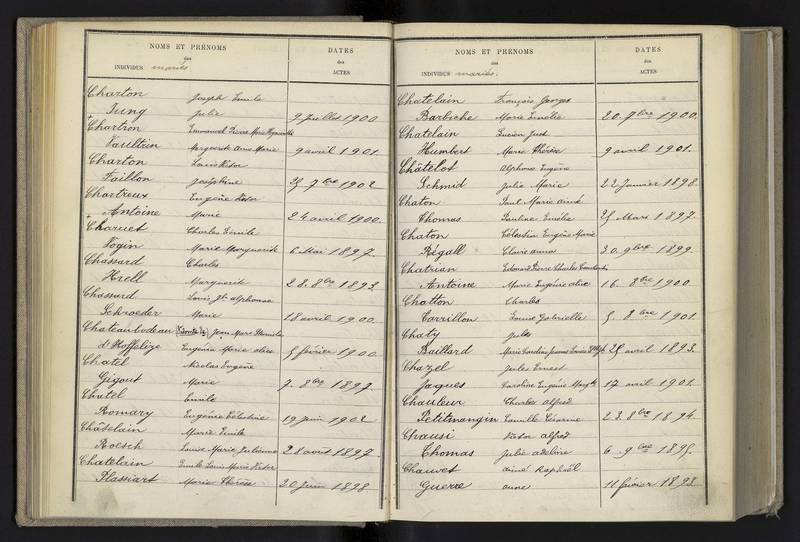 NOMS ET PRÉNOMS
des
INDIVIDUS mariés
DATES
des
ACTES
Charton Joseph Emile
Jung Julie 9 Juillet 1900
+ Chartron Emmanuel Pierre Marie Hyacinthe
Faultrin Marguerite Anne Marie 9 avril 1901.
Charton Louis Victor
Faillon Joséphine 25 7bre 1902
Chartreux Eugène Victor
Antoine Marie 24 avril 1900.
+ Charuet Charles Emile
Fogin Marie Marguerite 6 Mai 1897.
Chassard Charles
Hrell Marguerite 28. 8bre 1893
Chassard Louis Jh alphonse
Schroeder Marie 18 avril 1900.
Chateaubodeau (Vicomte de) Jean Marc Stanislas
d'Hoffelize Eugénie Marie alice 5 février 1900
Chatel Nicolas Eugène
Gigout Marie 7. 8bre 1897.
Chatel Emile
Romary Eugénie Célestine 19 Juin 1902
Châtelain Marie Emile
Roesch Louise Marie Julienne 28 août 1897.
Chatelain Emile Louis Marie Victor
Plassiart Marie Thérèse 20 Juin 1898
NOMS ET PRÉNOMS
des
INDIVIDUS mariés.
DATES
des
ACTES
Chatelain François Georges
Barbiche Marie Emélie 20. 7bre 1900.
Chatelain Lucien Just
Humbert Marie Thérèse 9 avril 1901.
Châtelot Alphonse Eugène
Schmid Julie Marie 22 Janvier 1898.
Chaton Paul Marie aimé
Thomas Pauline Emélie 25 Mars 1897.
Chaton Célestin Eugène Marie
Régall Claire anna 30. 9bre 1899.
Chatrian Edouard Pierre Charles Constant
Antoine Marie Eugénie alice 16. 8bre 1900.
Chatton Charles
Tarrillon Louise Gabrielle 5. 8bre 1901.
Chaty Jules
Baillard Marie Caroline Jeanne Louise 25 avril 1893.
Chazel Jules Ernest
Jaques Caroline Eugénie Margte 17 avril 1901.
Chauleur Charles alfred
Petitmangin Camille Césarine 23. 8bre 1894.
Chausi Victor alfred
Thomas Julie adeline 6. 9bre 1895.
Chauvet aimé Raphaël
Guerre anne 11 février 1893.